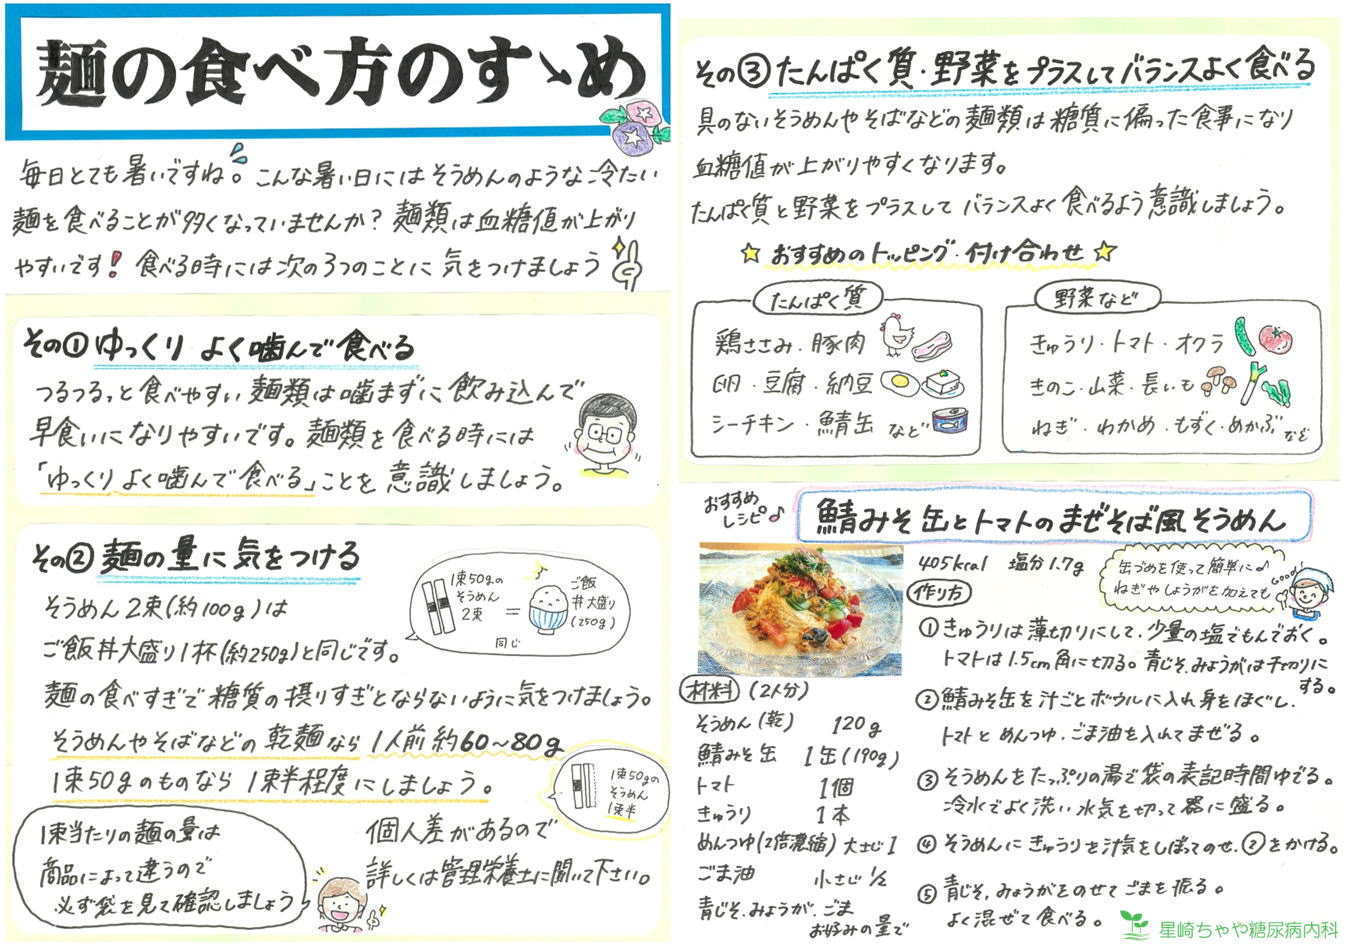 麺の食べ方のすゝめ
毎日とても暑いですね。こんな暑い日にはそうめんのような冷たい
麺を食べることが多くなっていませんか？麺類は血糖値が上がり
やすいです！食べる時には次の3つのことに気をつけましょう
その①ゆっくりよく噛んで食べる
つるつるっと食べやすい麺類は噛まずに飲み込んで
早食いになりやすいです。麺類を食べる時には
「ゆっくりよく噛んで食べる」ことを意識しましょう。
その②麺の量に気をつける
そうめん2束(約100g)は
ご飯丼大盛り1杯(約250g)と同じです。
1束50gの
そうめん
2束
=
ご飯
丼大盛り
(250g)
同じ
麺の食べすぎで糖質の摂りすぎとならないように気をつけましょう。
そうめんやそばなどの乾麺なら1人前約60～80g
1束50gのものなら1束半程度にしましょう。
1束50gの
そうめん
1束半
1束当たりの麺の量は
商品によって違うので
必ず袋を見て確認しましょう
個人差があるので
詳しくは管理栄養士に聞いて下さい。
その③たんぱく質・野菜をプラスしてバランスよく食べる
具のないそうめんやそばなどの麺類は糖質に偏った食事になり
血糖値が上がりやすくなります。
たんぱく質と野菜をプラスしてバランスよく食べるよう意識しましょう。
☆おすすめのトッピング・付け合わせ☆
たんぱく質
鶏ささみ・豚肉
卵・豆腐・納豆
シーチキン・鯖缶など
野菜など
きゅうり・トマト・オクラ
きのこ・山菜・長いも
ねぎ・わかめ・もずく・めかぶなど
おすすめ
レシピ♪
鯖みそ缶とトマトのまぜそば風そうめん
405kcal 塩分1.7g
缶づめを使って簡単に♪
ねぎやしょうがを加えても
Good!
材料(2人分)
そうめん(乾) 120g
鯖みそ缶 1缶(190g)
トマト 1個
きゅうり 1本
めんつゆ(2倍濃縮) 大さじ1
ごま油 小さじ1/2
青じそ、みょうが、ごま
お好みの量で
作り方
①きゅうりは薄切りにして、少量の塩でもんでおく。
トマトは1.5cm角に切る。青じそ、みょうがは千切りに
する。
②鯖みそ缶を汁ごとボウルに入れ身をほぐし、
トマトとめんつゆ、ごま油を入れてまぜる。
③そうめんをたっぷりの湯で袋の表記時間ゆでる。
冷水でよく洗い水気を切って器に盛る。
④そうめんにきゅうりを汁気をしぼってのせ、②をかける。
⑤青じそ、みょうがをのせてごまを振る。
よく混ぜて食べる。
星崎ちゃや糖尿病内科